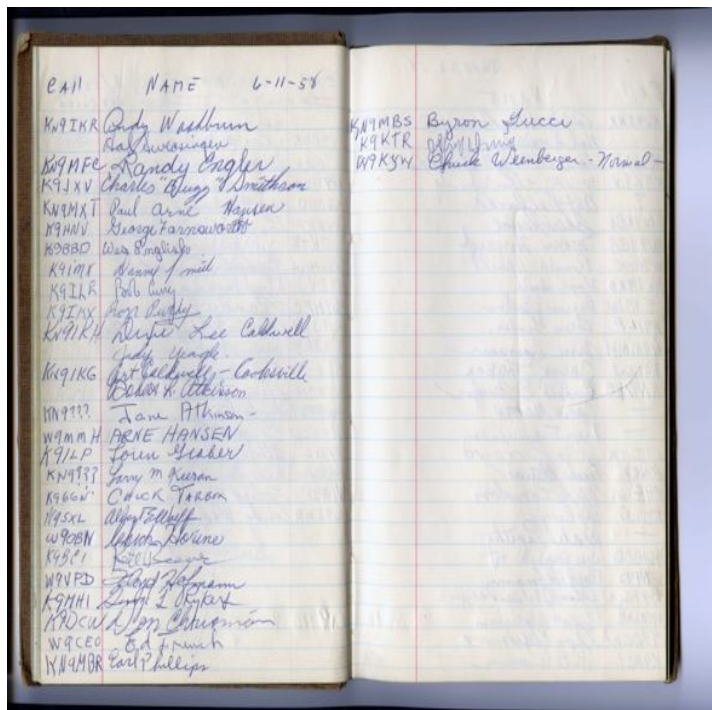 CALL NAME 6-11-58
KN9IKR Andy Washburn
KN9MFC Randy Engler
K9JXV Charles "Bugg" Smithson
KN9MXT Paul Arne Hansen
K9HNV George Farnsworth
K9BBD Wes English
K9IMX Danny
K9ILR Bob Curry
K9IKX Ron
KN9IKH Lee Caldwell
Judy Yeagle
KN9IKG Art Caldwell - Cooksville
R. Atkinson
KN9??? Jane Atkinson -
W9MMH ARNE HANSEN
K9ILP Loren Graber
KN9??? Larry M Kieran
K9GGN CHICK TARBOX
K9SXL
W9OBN Horine
K9BCI
W9VPD Lloyd Hofmann
K9MHI
K9DCW Don Chrisman
W9CEO Ed French
KN9MBR Earl Phillips
KN9MBS Byron Gucci
K9KTR
W9KJW Chuck Weenberger - Normal -